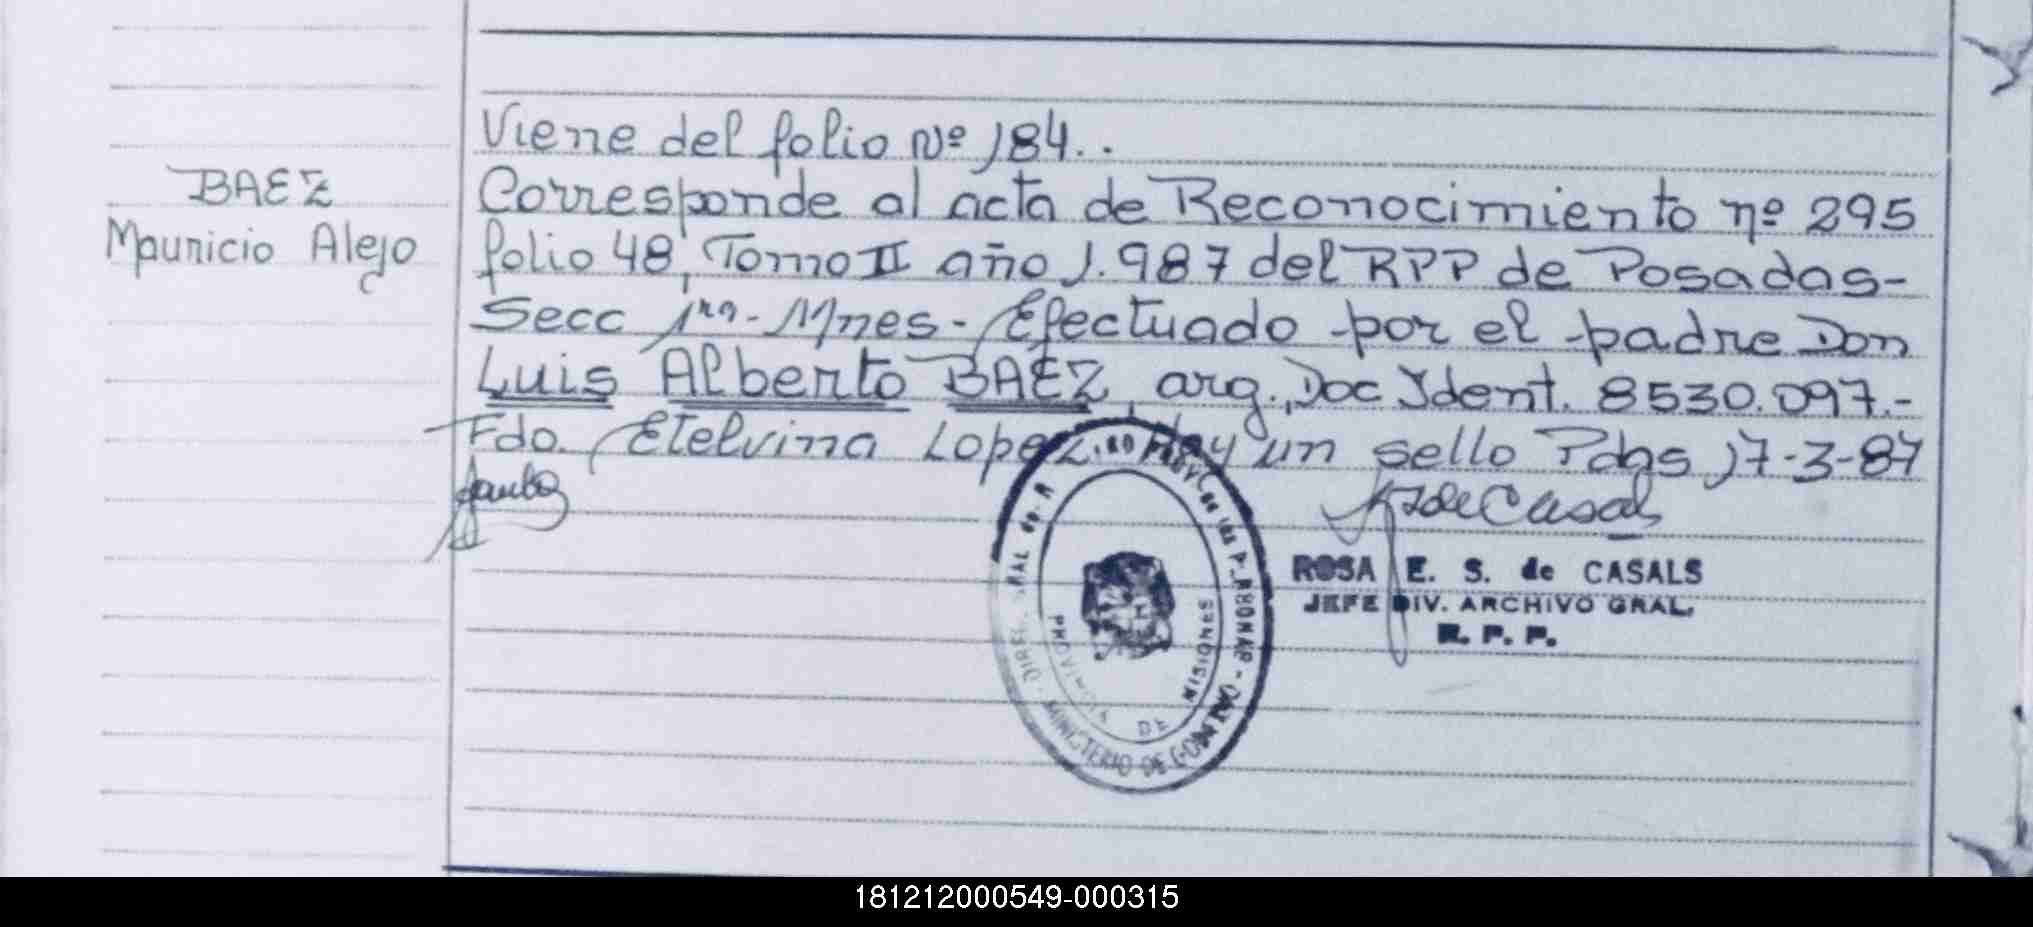 Viene del folio Nº 184..
BAEZ
Mauricio Alejo
Corresponde al acta de Reconocimiento nº 295
folio 48, Tomo II año 1.987 del RPP de Posadas-
Secc 1ra.- Mnes.- Efectuado por el padre Don
Luis Alberto BAEZ, arg., Doc Ident. 8530.097.-
Fdo. Etelvina Lopez. Hay un sello Pdas 17-3-87
ROSA E. S. de CASALS
JEFE DIV. ARCHIVO GRAL.
R. P. P.
PROVINCIA DE MISIONES
MINISTERIO DE
181212000549-000315